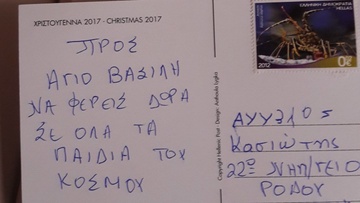 ΧΡΙΣΤΟΥΓΕΝΝΑ 2017 - CHRISTMAS 2017
ΠΡΟΣ
ΑΓΙΟ ΒΑΣΙΛΗ
ΝΑ ΦΕΡΕΙΣ ΔΩΡΑ
ΣΕ ΟΛΑ ΤΑ
ΠΑΙΔΙΑ ΤΟΥ
ΚΟΣΜΟΥ
ΕΛΛΗΝΙΚΗ ΔΗΜΟΚΡΑΤΙΑ
HELLAS
2012
Copyright Hellenic Post - Design:
Κασιώτης
22ο ΝΗΠ/ΓΕΙΟ
ΡΟΔΟΥ